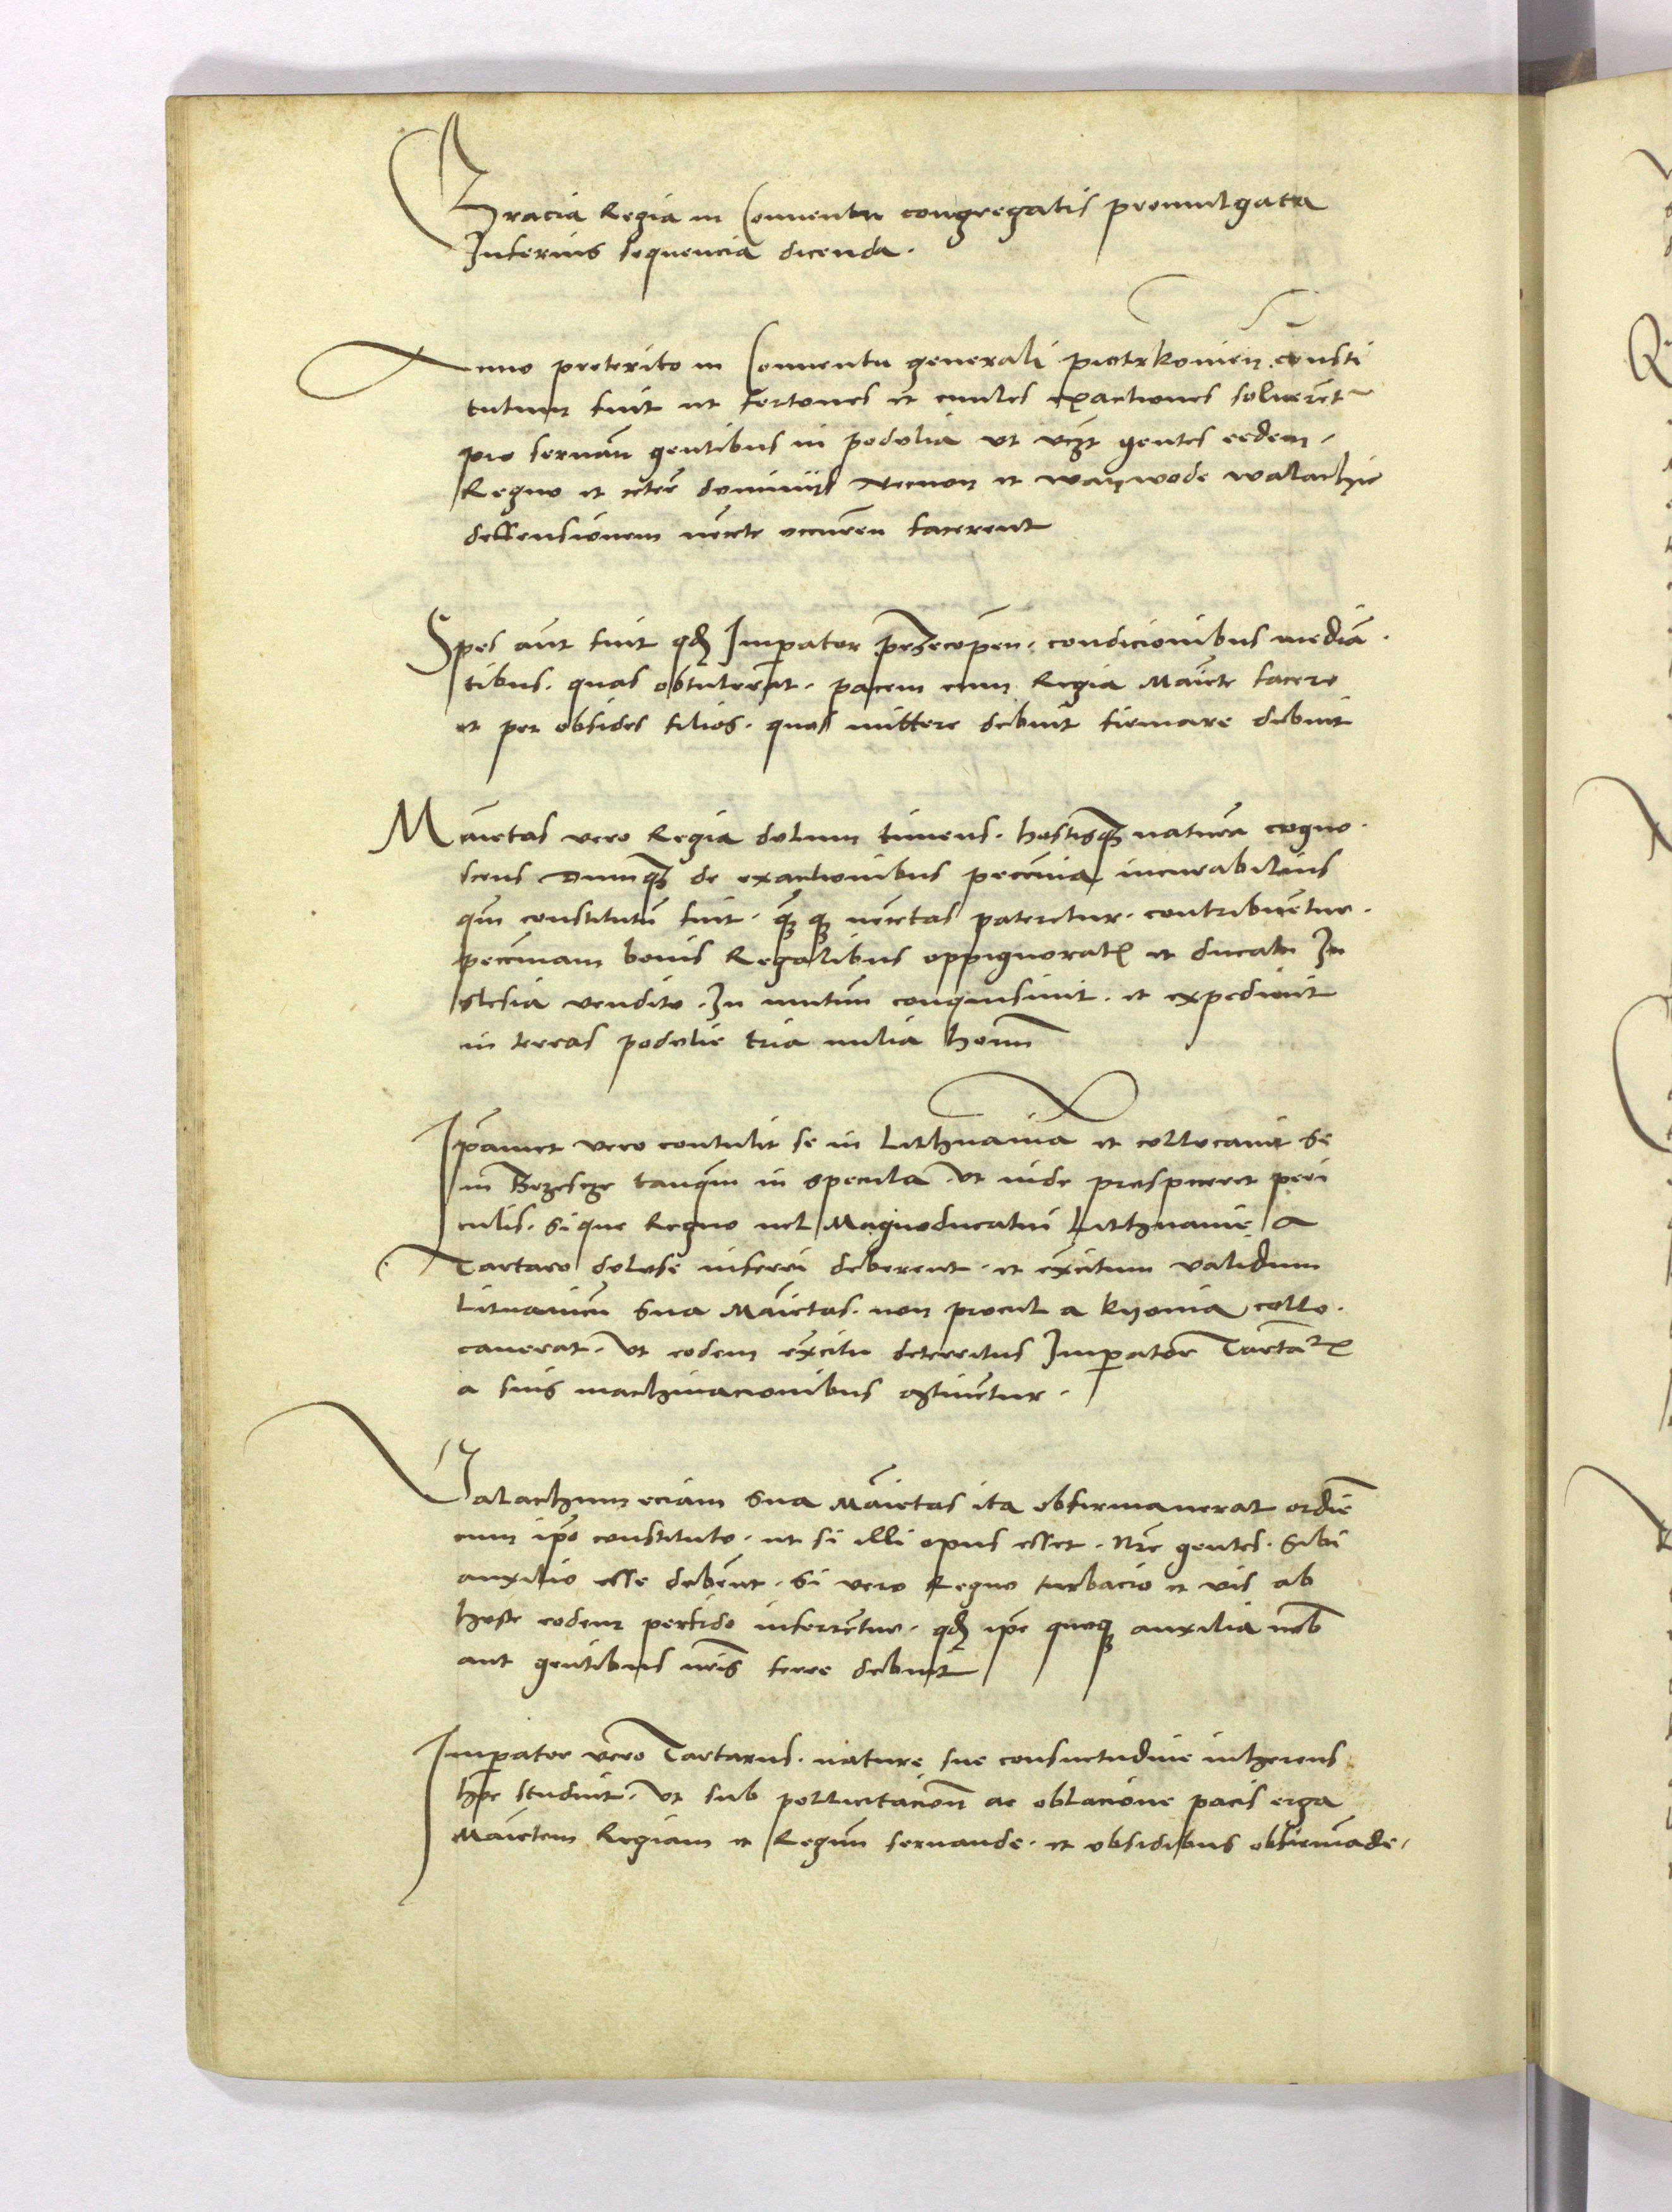 Gracia Regia in Conuentu congregatis promulgata
Inferius sequencia dicenda.
Anno preterito in Conuentu generali piotrkouien. consti
tutum fuit ut fertones et ciuiles exactiones soluerent
pro seruan gentibus in podolia ut vczt gentes eedem.
Regno et ceter dominijs Necnon et waywode walachie
deffensionem necte occuren facerent
Spes aut fuit qd Imperator przecopen. condicionibus mediā
tibus. quas obtulerat. pacem cum Regia Maiete facere
et per obsides filios. quos mittere debuit firmare debuit
Maietas vero Regia dolum timens. hostisque naturā cogno
scens Dumque de exactionibus pecunia incurabilius
qm constitutū fuit. quam que necetas pateretur. contribuetur.
pecuniam bonis Regalibus oppignoratis et ducatu In
slesia vendito. In mutuū conquisiuit. et expediuit
in terras podolie tria milia hom
Ipamet vero contulit se in Lithuaniā et collocauit se
in Brzesczye tanqm in specula. Vt inde prospiceret peri
culis. si que Regno uel Magnoducatui Lithuanie a
Tartaro dolose inferri deberent. et excitum validum
Lituanicū Sua Maietas. non procul a kyouia collo
cauerat. Vt eodem excitu deterritus Imperator Tartaroꝝ
a suis machinacionibus contineretur.
Valachum eciam Sua Maietas ita obfirmauerat ordine
cum ipo constituto. ut si illi opus esset. nre gentes. sibi
auxilio esse debent. Si vero Regno turbacio et vis ab
hoste eodem perfido inferretur. qd ipe quoque auxilia nob
aut gentibus nris ferre debuit
Imperator vero Tartarus. nature sue consuetudine inherens
hoc studuit. Vt sub pollicitacion ac oblacione pacis erga
Maietem Regiam et Regnum seruande. et obsidibus obfirmāde.